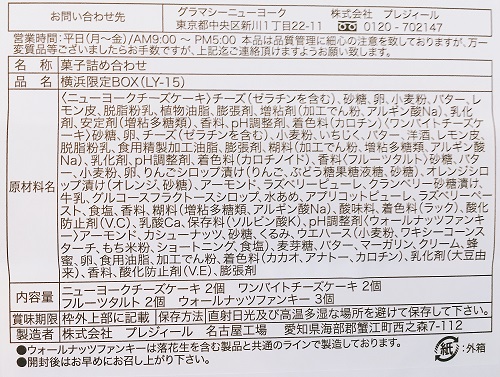 お問い合わせ先 グラマシーニューヨーク 株式会社 プレジィール
東京都中央区新川1丁目22-11 0120-702147
営業時間:平日(月〜金)/AM9:00 〜 PM5:00 本品は品質管理に細心の注意を致しておりますが、万一
変質品等ございましたらお手数ですが、上記迄ご連絡頂きます様お願い致します。
名 称 菓子詰め合わせ
品 名 横浜限定BOX(LY-15)
原材料名
〈ニューヨークチーズケーキ〉チーズ(ゼラチンを含む)、砂糖、卵、小麦粉、バター、レ
モン皮、脱脂粉乳、植物油脂、膨張剤、増粘剤(加工でん粉、アルギン酸Na)、乳化
剤、安定剤(増粘多糖類)、香料、pH調整剤、着色料(カロチン)〈ワンバイトチーズケ
ーキ〉砂糖、卵、チーズ(ゼラチンを含む)、小麦粉、いちじく、バター、洋酒、レモン皮、
脱脂粉乳、食用精製加工油脂、膨張剤、糊料(加工でん粉、増粘多糖類、アルギン酸
Na)、乳化剤、pH調整剤、着色料(カロチノイド)、香料〈フルーツタルト〉砂糖、バタ
ー、小麦粉、卵、りんごシロップ漬け(りんご、ぶどう糖果糖液糖、砂糖)、オレンジシロ
ップ漬け(オレンジ、砂糖)、アーモンド、ラズベリーピューレ、クランベリー砂糖漬け、
牛乳、グルコースフラクトースシロップ、水あめ、アプリコットピューレ、ラズベリーペ
ースト、食塩、香料、糊料(増粘多糖類、アルギン酸Na)、酸味料、着色料(ラック)、酸化
防止剤(V.C)、乳酸Ca、保存料(ソルビン酸K)、pH調整剤〈ウォールナッツファンキ
ー〉アーモンド、カシューナッツ、砂糖、くるみ、ウエハース(小麦粉、ワキシーコーンス
ターチ、もち米粉、ショートニング、食塩)、麦芽糖、バター、マーガリン、クリーム、蜂
蜜、卵、食用油脂、加工でん粉、着色料(カカオ、アナトー、カロチン)、乳化剤(大豆由
来)、香料、酸化防止剤(V.E)、膨張剤
内容量 ニューヨークチーズケーキ 2個 ワンバイトチーズケーキ 2個
フルーツタルト 2個 ウォールナッツファンキー 3個
賞味期限 枠外上部に記載 保存方法 直射日光及び高温多湿な場所を避けて保存して下さい。
製造者 株式会社 プレジィール 名古屋工場 愛知県海部郡蟹江町西之森7-112
●ウォールナッツファンキーは落花生を含む製品と共通のラインで製造しています。
●開封後はお早めにお召し上がり下さい。
紙 :外箱